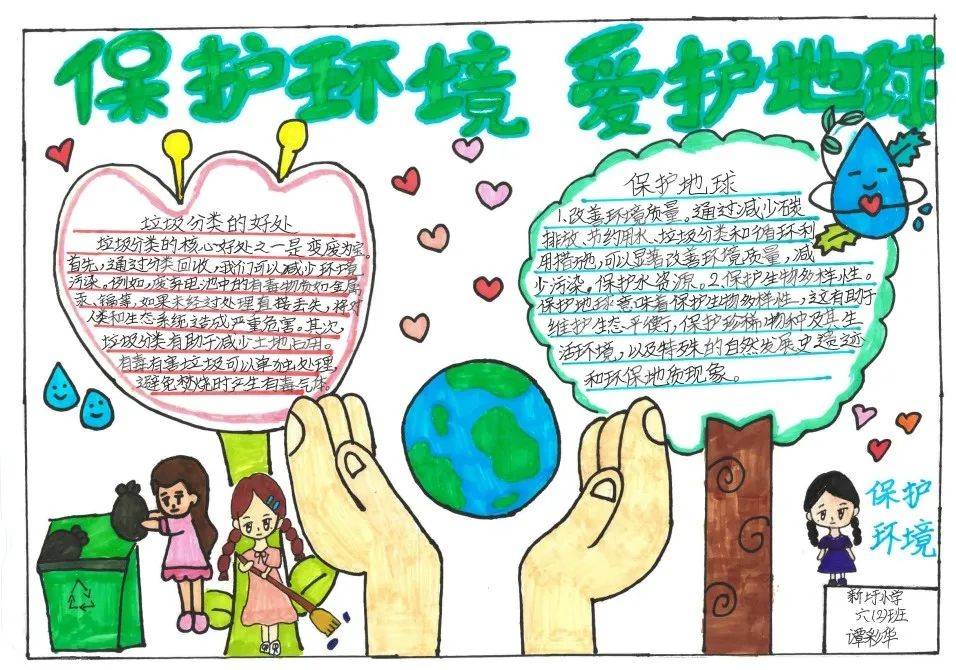 保护环境 爱护地球
垃圾分类的好处
垃圾分类的核心好处之一是变废为宝。
首先,通过分类回收,我们可以减少环境
污染。例如,废弃电池中的有毒物质如金属
汞、镉等,如果未经过处理直接丢失,将对
人类和生态系统造成严重危害。其次,
垃圾分类有助于减少土地占用。
有毒有害垃圾可以单独处理,
避免焚烧时产生有毒气体。
保护地球
1.改善环境质量。通过减少碳
排放、节约用水、垃圾分类和循环利
用措施,可以显著改善环境质量,减
少污染,保护水资源。2.保护生物多样性。
保护地球意味着保护生物多样性,这有助于
维护生态平衡,保护珍稀物种及其生
活环境,以及特殊的自然发展史遗迹
和环保地质现象。
保护
环境
新圩小学
六(2)班
谭彩华